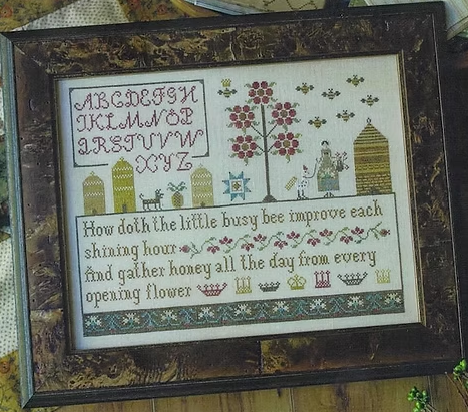 ABCDEFGH
IKLMNOP
QRSTUVW
XYZ
How doth the little busy bee improve each
shining hour
And gather honey all the day from every
opening flower